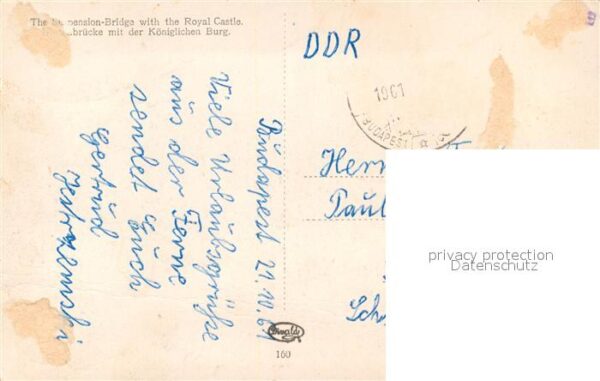 The Suspension-Bridge with the Royal Castle.
brücke mit der Königlichen Burg.
DDR
1961
BUDAPEST
Budapest 21.10.61
Viele Urlaubsgrüße
aus der Ferne
sendet Euch
Gertrud
Herrn
Paul
Sch
privacy protection
Datenschutz
Divald
160